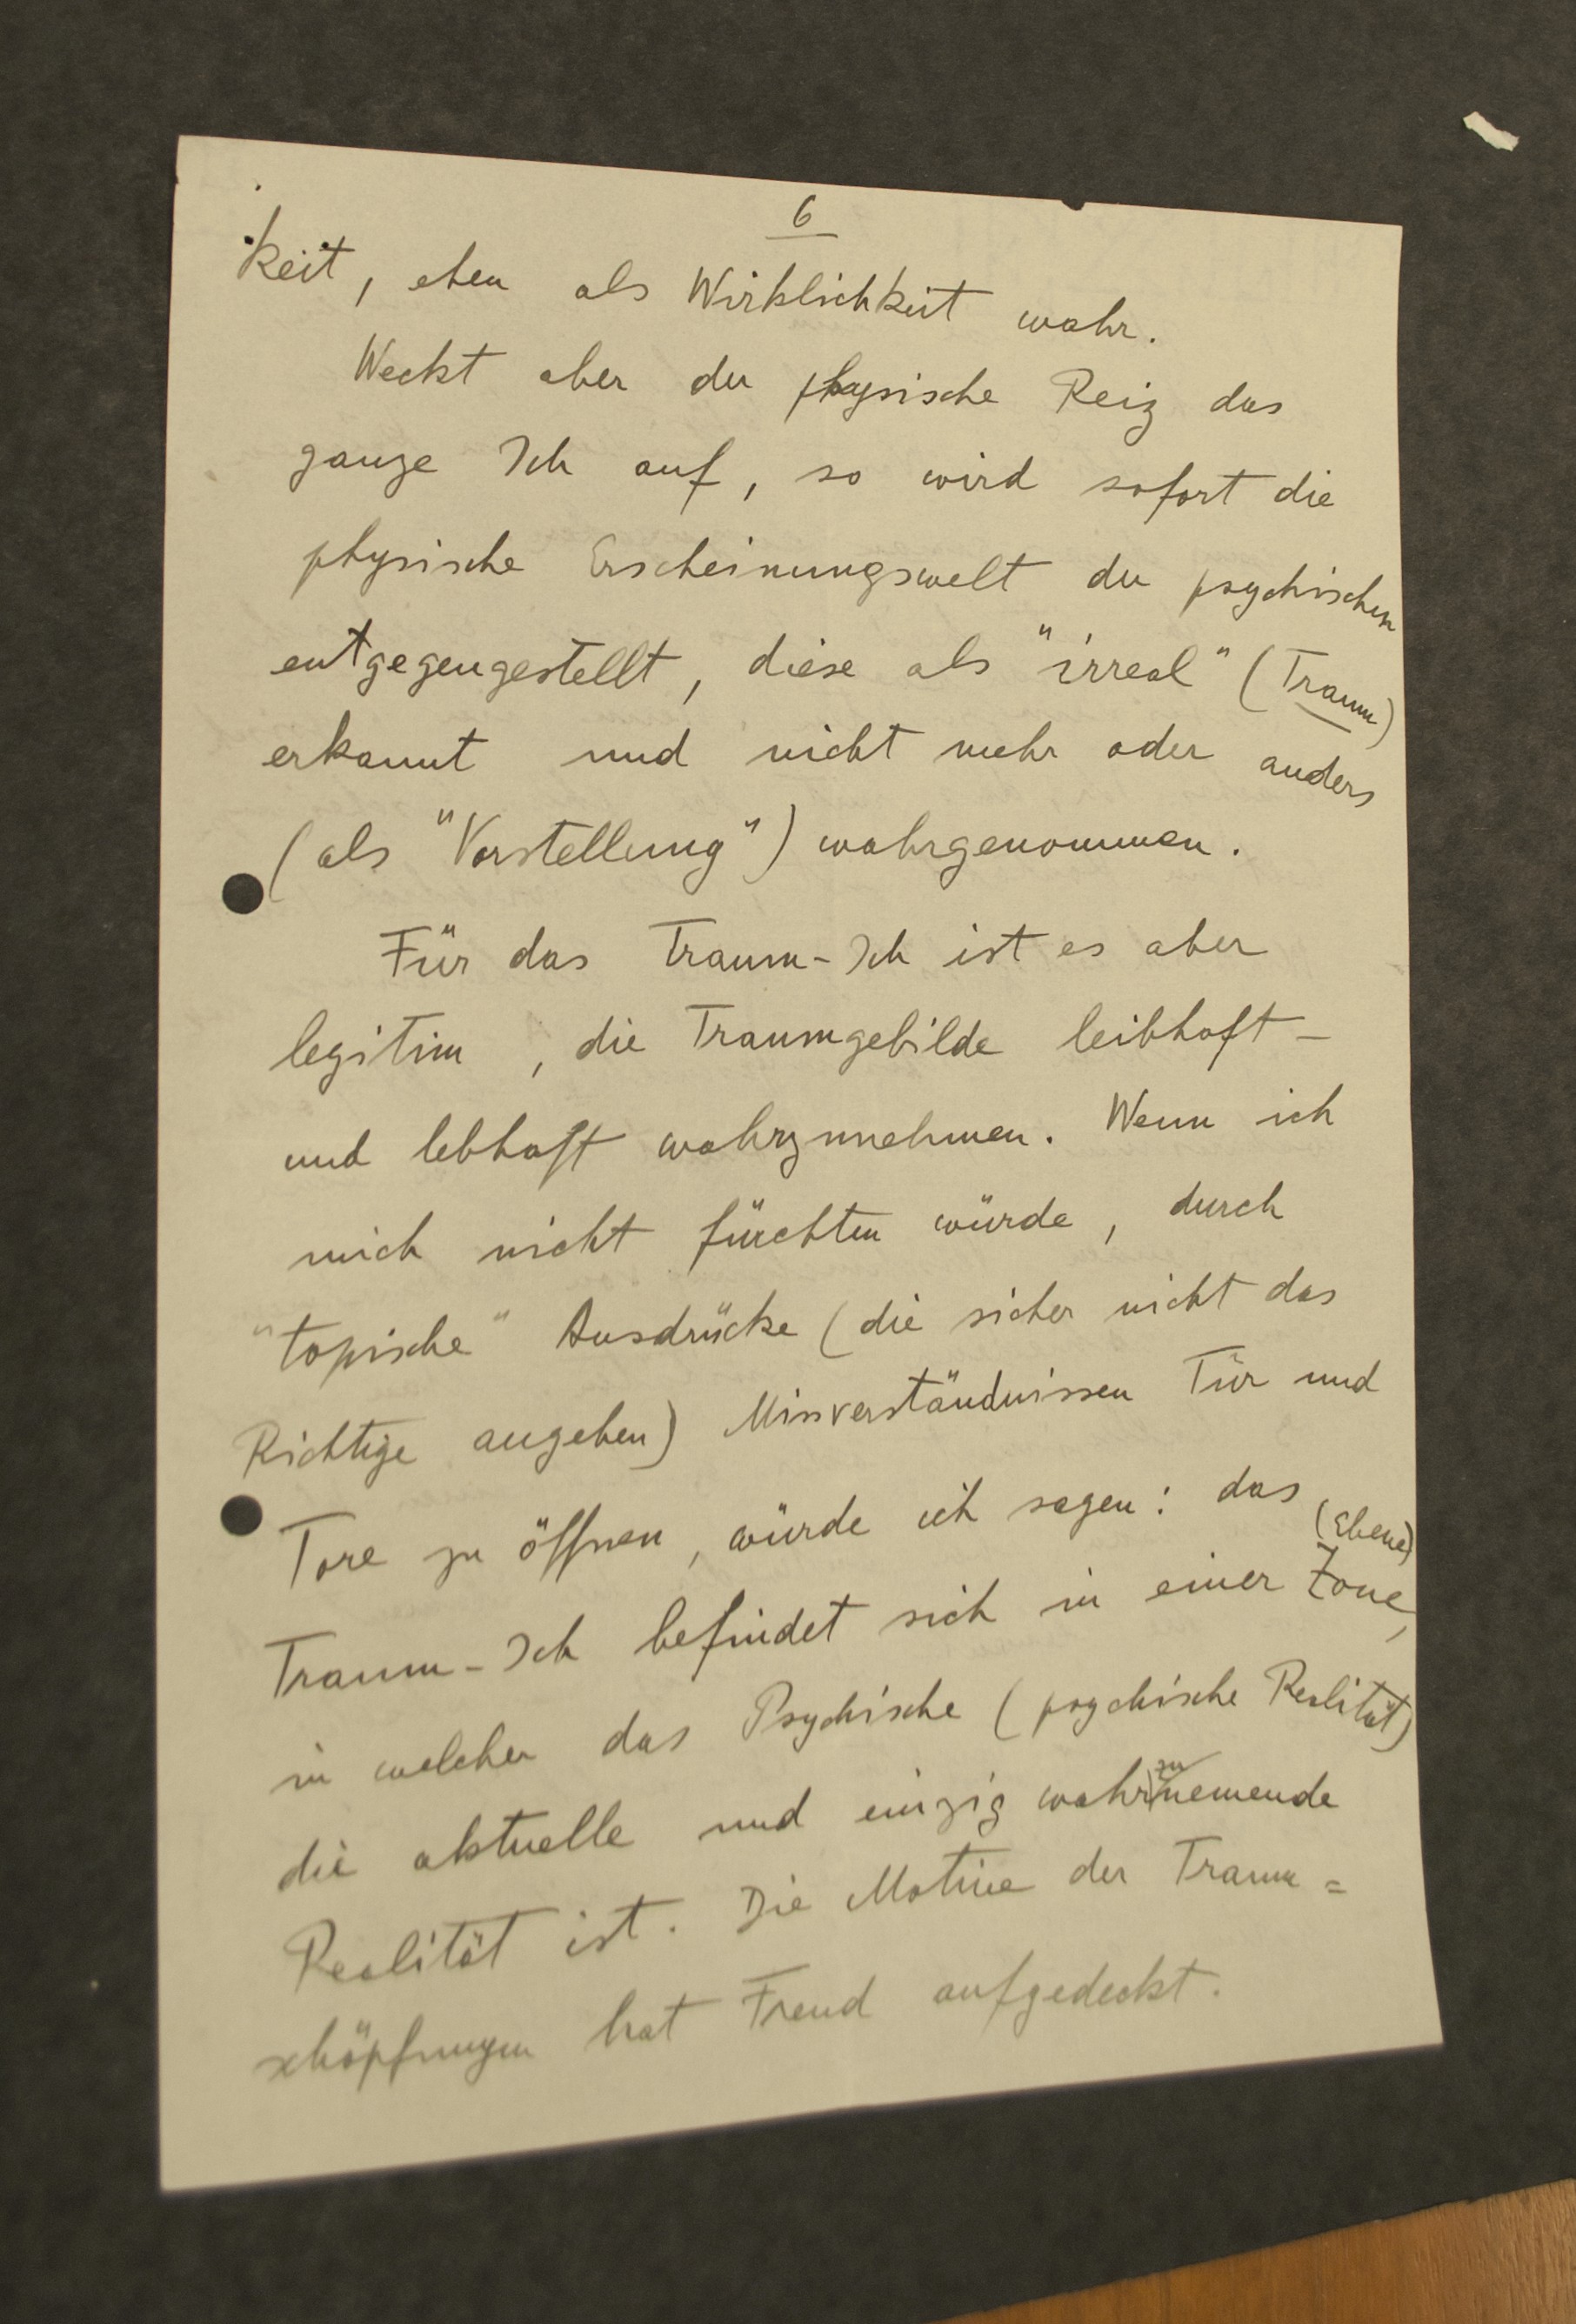 6
keit, eben als Wirklichkeit wahr.
Weckt aber der physische Reiz das
ganze Ich auf, so wird sofort die
physische Erscheinungswelt der psychischen
entgegengestellt, diese als "irreal" (Traum)
erkannt und nicht mehr oder anders
(als "Vorstellung") wahrgenommen.
Für das Traum-Ich ist es aber
legitim, die Traumgebilde leibhaft-
und lebhaft wahrzunehmen. Wenn ich
mich nicht fürchten würde, durch
"topische" Ausdrücke (die sicher nicht das
Richtige angeben) Missverständnissen Tür und
Tore zu öffnen, würde ich sagen: das
(Ebene)
Traum-Ich befindet sich in einer Zone,
in welcher das Psychische (psychische Realität)
zu
die aktuelle und einzig wahrnemende
Realität ist. Die Motive der Traum=
schöpfungen hat Freud aufgedeckt.